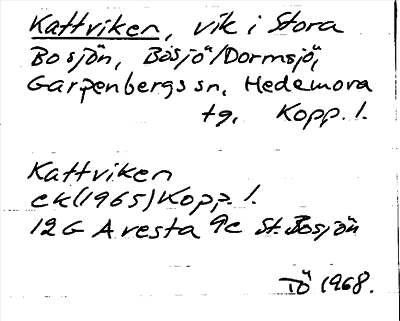 Kattviken, vik i Stora
Bosjön, Bösjö/Dormsjö,
Garpenbergs sn, Hedemora
tg, Kopp. l.
Kattviken
ek (1965) Kopp. l.
12G Avesta 9c St. Bosjön
TÖ 1968.